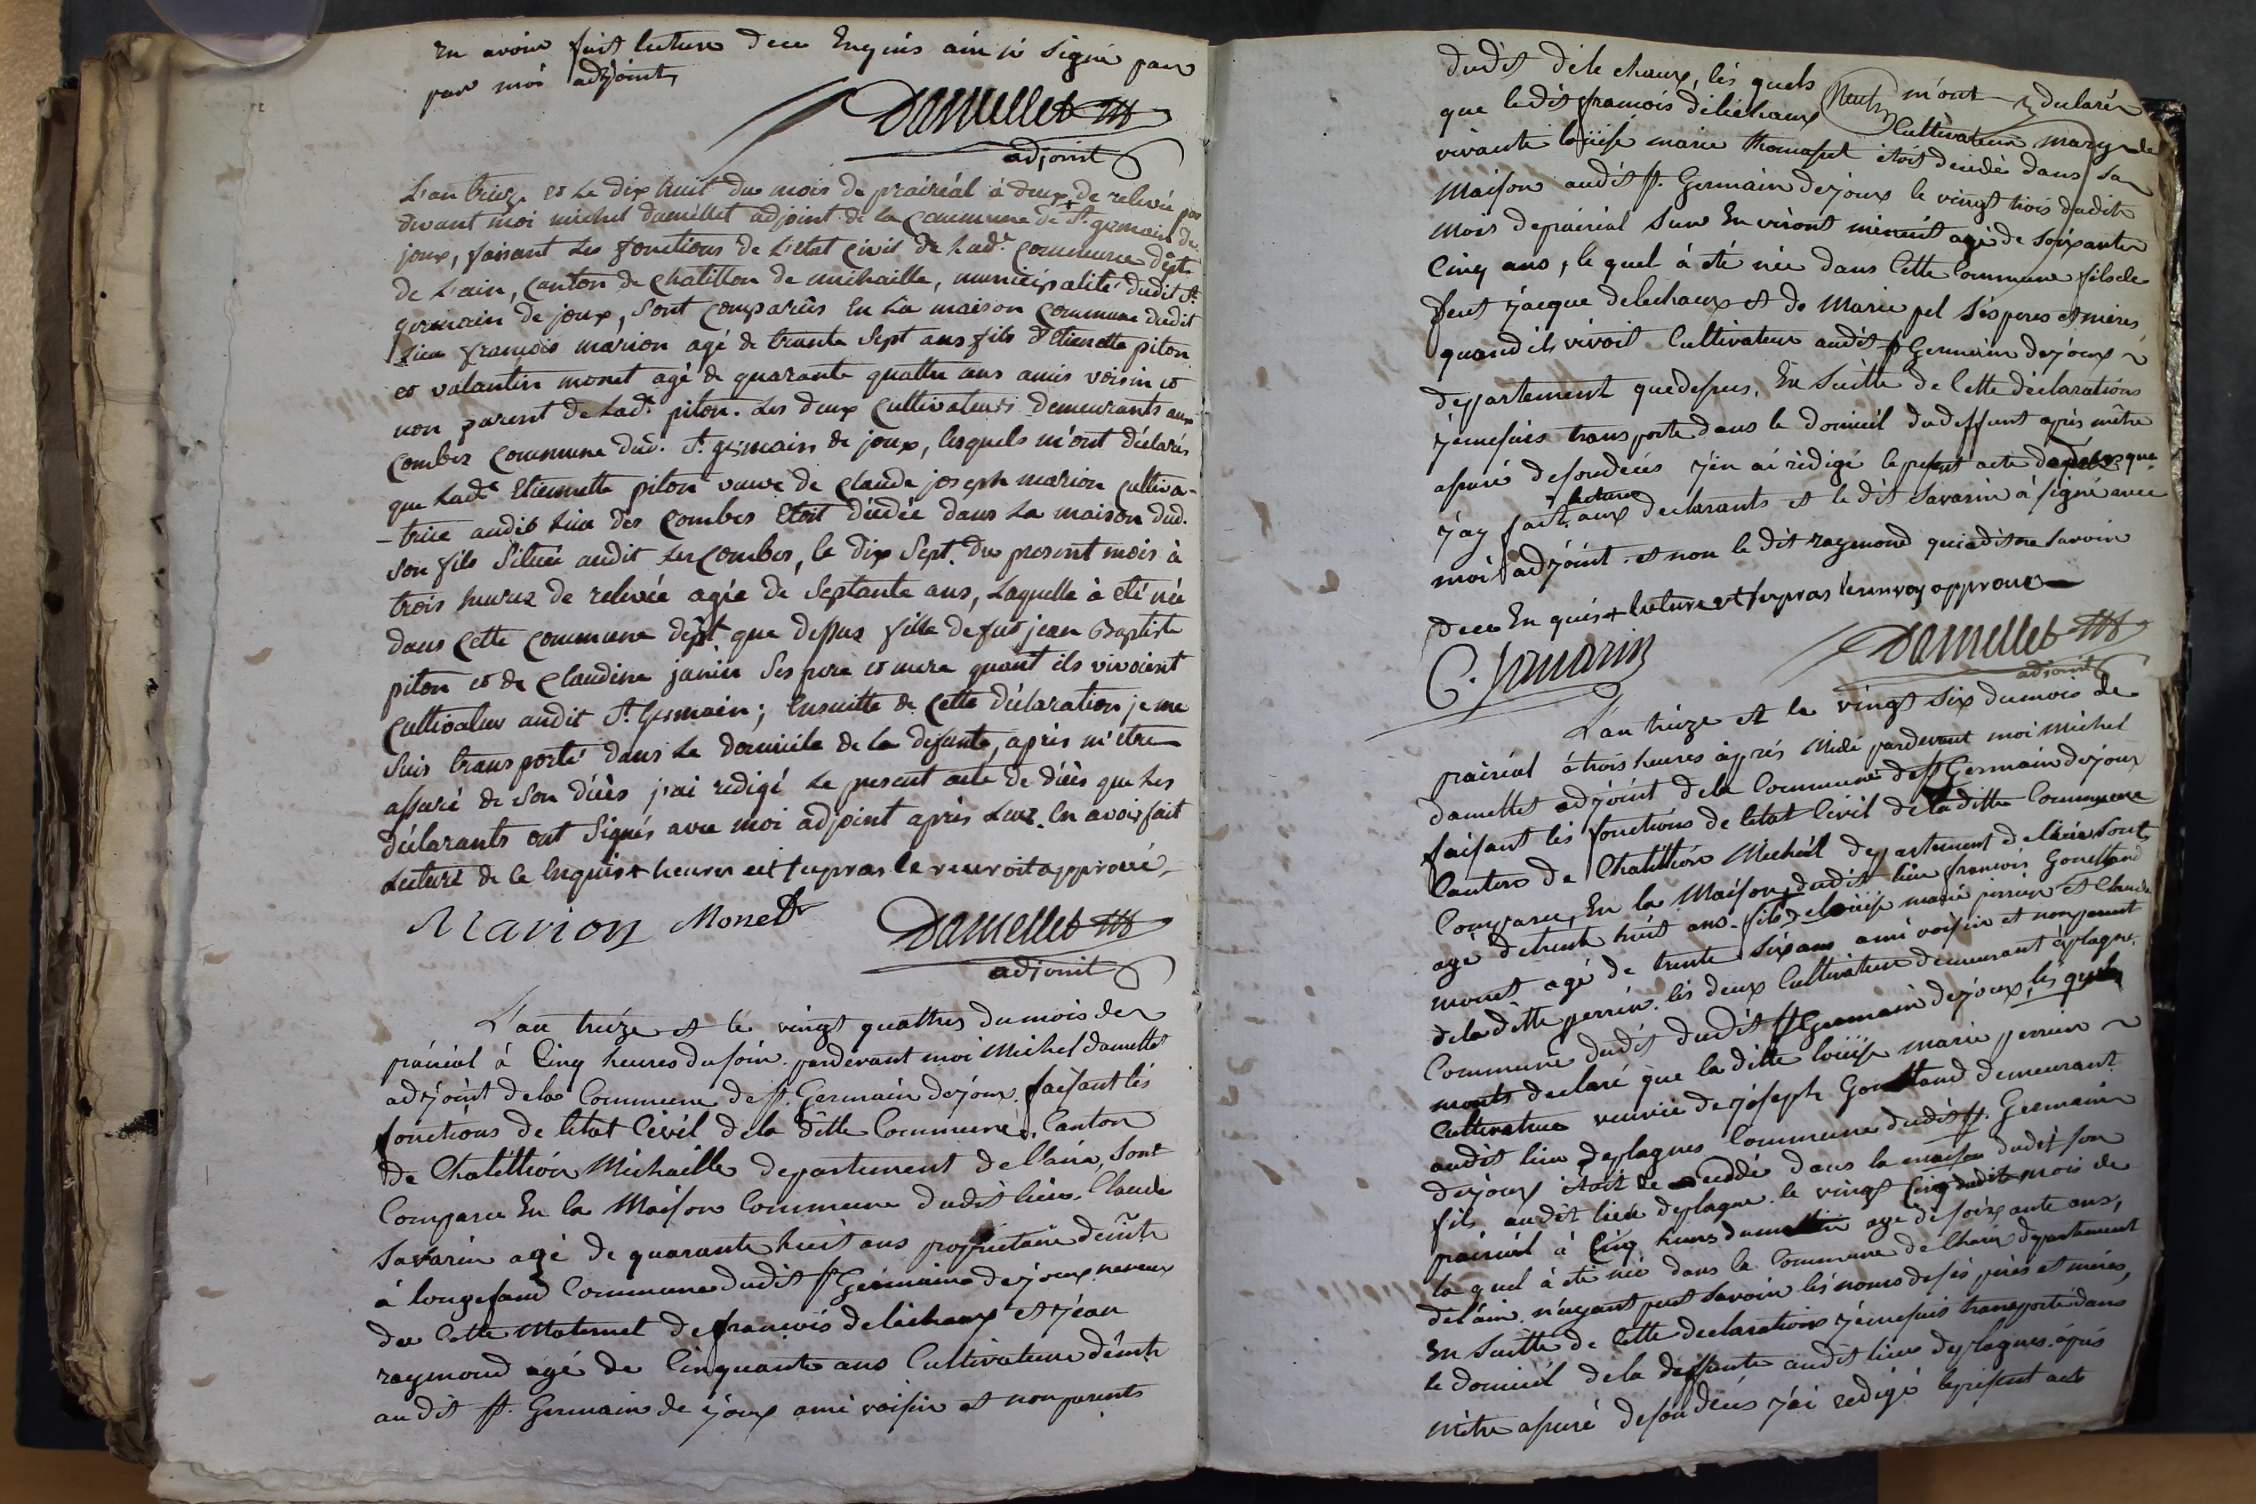 en avoir fait lecture dece enquis ainsi signé par
par moi adjoint,
Damellet
adjoint
L'an treize et le dix huit du mois de prairéal à deux + de relevée par
devant moi michel damellet adjoint de la commune de St. germain de
joux, faisant les fonctions de l'état civil de lad.e commune dépt.
de L'ain, canton de chatillon de michaille, municipalité dudit St.
germain de joux, sont comparûs en la maison commune dudit
lieu françois marion agé de trante sept ans fils d'Etienette piton
et valantin monet agé de quarante quattre ans amis voisin et
non parent de lad.e piton. Les deux cultivateurs demeurants aux
combes commune dud. St. germain de joux, lesquels m'ont déclarés
que lad.e Etiennette piton vauve de claude joseph marion cultiva-
-trice audit lieu des combes etoit décédée dans la maison dud.
son fils située audit les combes, le dix sept du present mois à
trois heures de relevée agée de septante ans, laquelle à été née
dans cette commune dépt. que dessus fille de fut jean Baptiste
piton et de claudine janin ses pere et mere quant ils vivoient
cultivateur audit St. Germain; ensuitte de cette déclaration je me
suis transporté dans le domicile de la defunte, après m'etre
assuré de son décès j'ai redigé le present acte de décès que les
déclarants ont signés avec moi adjoint après leur en avoir fait
lecture de ce enquis + heures est supras le renvoit approuvé
Marion Monet Damellet
adjoint
L'an treize et le vingt quattres du mois de
prairial à cinq heures du soir pardevant moi Michel damellet
adjoint de la Commune de St. Germain dejoux faisant les
fonctions de letat Civil de la ditte Commune, Canton
de Chatillion Michaille departement de l'ain, sont
Comparu En la Maison Commune dudit lieu, Claude
Savarin agé de quarante huit ans proprietaire demt
à longefand Commune dudit St Germaine dejoux neveux
du Cotte Maternel de françois delechaux et jean
raymond agé de Cinquante ans Cultivateur demt
audit St. Germain de joux ami voisin et non parents
dudit dele chaux, les quels m'ont declarés
que ledit francois delechaux Cultivateur mary de
vivante loüise marie thomasset étoit decedé dans sa
Maison audit St. Germain dejoux le vingt trois dudit
mois deprairial sur En viront minuit agé de soixante
Cinq ans, le quel à été née dans Cette Commune fils de
feut jacque delechaux et de Marie pel ses peres et meres
quand ils vivoit Cultivateur audit St Germain dejoux
departement quedesus. En Suitte de Cette declarations
jemesuis transporte dans le domicil du deffunt après mêtre
assuré desondeces j'en ai rédigé leprésent acte dedeces que
j'ay fait + lecture aux declarants et le dit Savarin à signé avec
moi adjoint et non le dit raymond qui a dit ne savoir
dece En quis + lecture est supras lerenvoy approuve
C. Savarin Damellet
adjoint
L'an treize et le vingt six du mois de
prairéal à trois heures après Midi pardevant moi Michel
damellet adjoint dela Commune de St Germain dejoux
faisant lés fonctions de letat Civil de la ditte Commune
Canton de Chatillion Michail departement de l'ain sont
Comparu, En la Maison dudit lieu francois Gouilland
agé detrent huit ans fils delouise marie perrin et Claude
monet agé de trente six ans ami voisin et nonparent
dela ditte perrin les deux Cultivateur demeurant à plagne.
Commune dudit dudit St Germain dejoux, les quels
monts declaré que la ditte loüise marie perrin
Cultivatrice veuvée dejoseph Gouilland demeurant
audit lieu deplagnes Commune dudit St. Germain
dejoux étoit décedée dans la maison dudit son
fils audit lieu deplagne le vingt Cinq dudit mois de
prairial à Cinq heures dumattin agé desoixante ans,
la quel à été née dans la Commune de Charix departement
del'ain n'ayant peut savoir les noms de ses peres et meres,
En Suitte de Cette declarations jemesuis transporté dans
le domicil dela deffunte audit lieu deplagnes après
mêtre assuré deson deces j'ai redigé leprésent acte